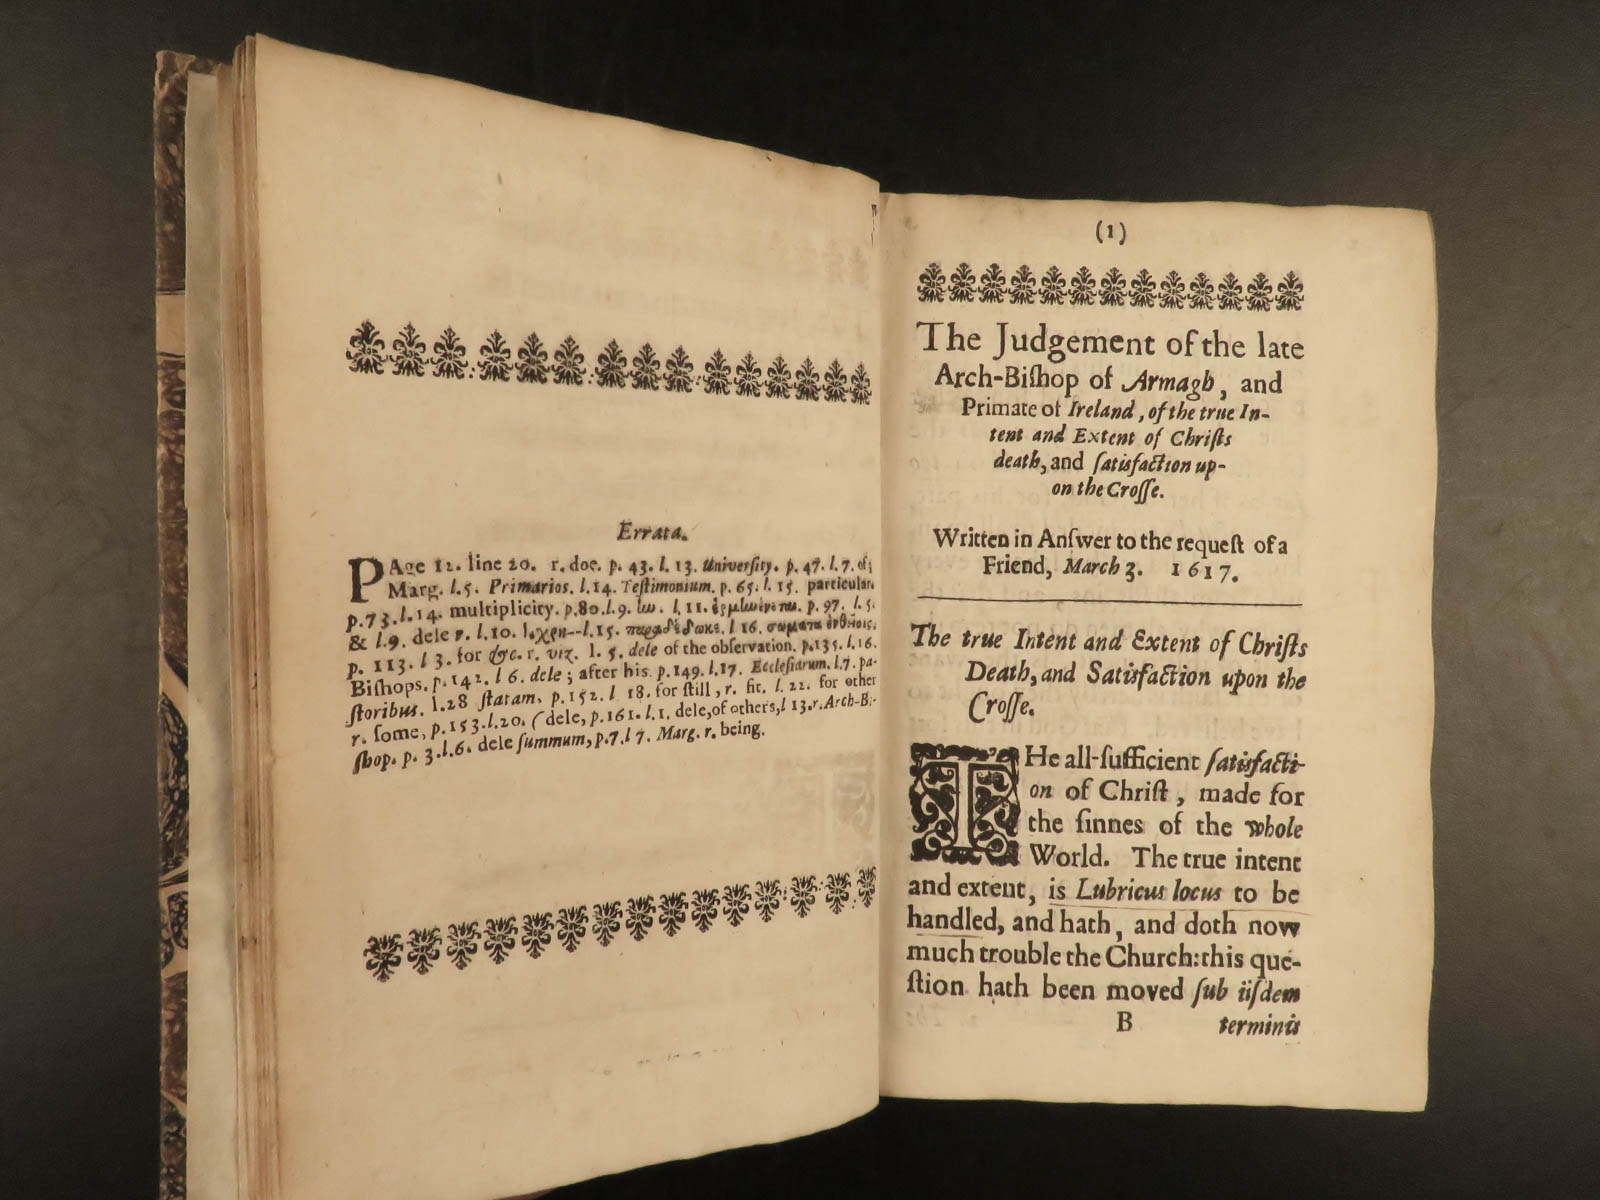 Errata.
PAge 12. line 20. r. doe. p. 43. l. 13. Univerſity. p. 47. l. 7. of
Marg. l.5. Primarios. l.14. Teſtimonium. p. 65. l. 15. particular
p.73.l.14. multiplicity. p.80.l.9. l. 11. p. 97. l.5.
& l.9. dele l.10. l.15. l 16.
p. 113. l 3. for &c. r. viz. l. 5. dele of the obſervation. p.135. l.16.
Biſhops. p. 142. l 6. dele ; after his p.149. l.17. Eccleſiarum. l.7. pa-
ſtoribus. l.28 ſtatam. p.152. l 18. for ſtill, r. fit. l.22. for other
r. ſome, p.153.l.20. (dele, p.161. l.1. dele, of others, l 13.r. Arch-Bi-
ſhop. p. 3.l.6. dele ſummum, p.7.l 7. Marg. r. being.
(1)
The Judgement of the late
Arch-Biſhop of Armagh, and
Primate of Ireland, of the true In-
tent and Extent of Chriſts
death, and ſatisfaction up-
on the Croſſe.
Written in Anſwer to the requeſt of a
Friend, March 3. 1617.
The true Intent and Extent of Chriſts
Death, and Satisfaction upon the
Croſſe.
THe all-ſufficient ſatisfacti-
on of Chriſt, made for
the ſinnes of the whole
World. The true intent
and extent, is Lubricus locus to be
handled, and hath, and doth now
much trouble the Church: this que-
ſtion hath been moved ſub iiſdem
B terminis